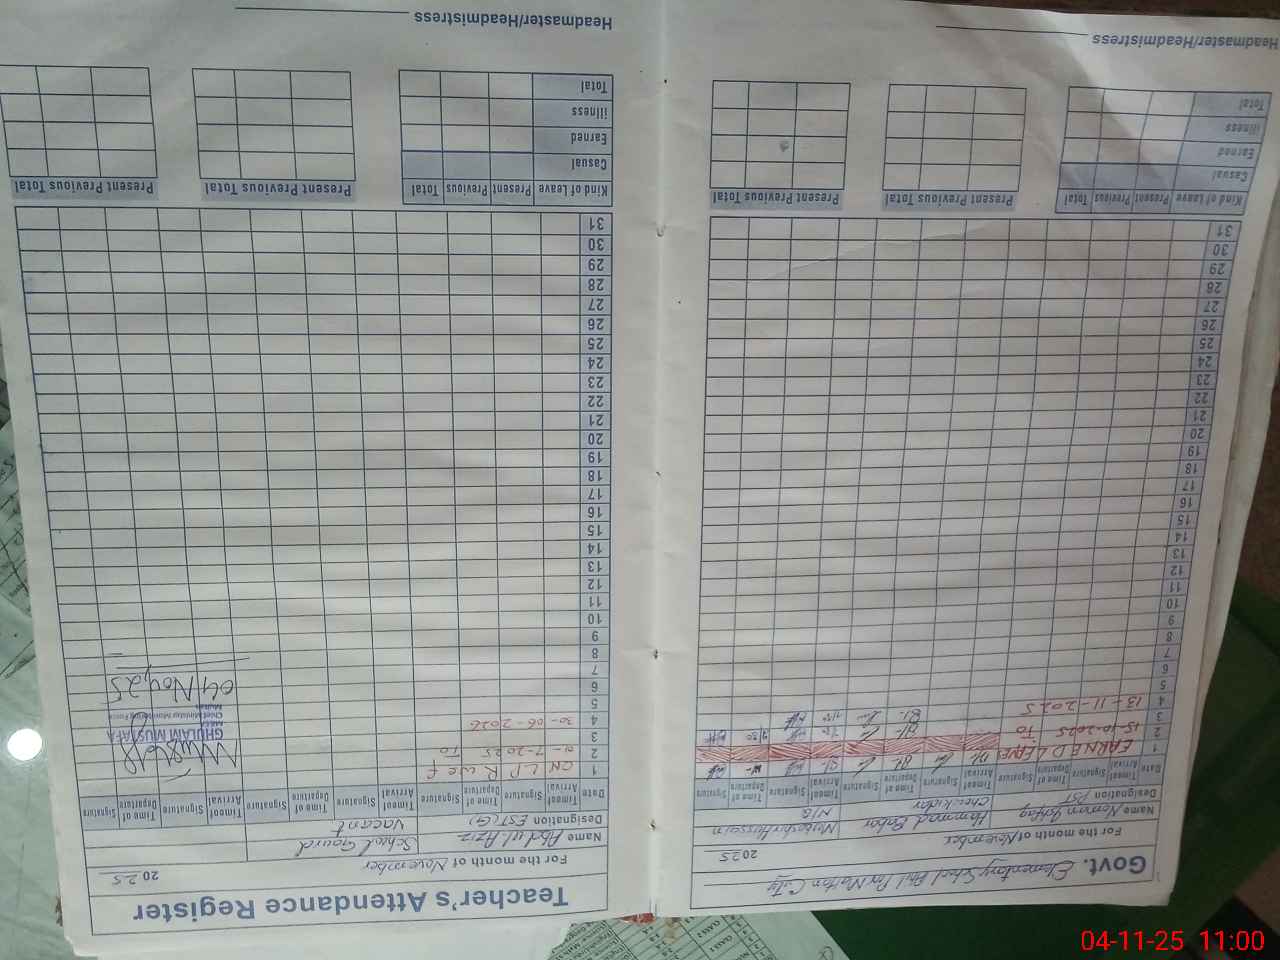 Govt. Elementary School
Multan City
For the month of November 2025
Name Noman Ishfaq
Hammad
Mubashir Hussain
Designation PST
Chowkidar
N/Q
Date
Time of Arrival Signature Time of Departure Signature Time of Arrival Signature Time of Departure Signature Time of Arrival Signature Time of Departure Signature
1 EARNED LEAVE
2 15-10-2025 TO
3
4 13-11-2025
5
6
7
8
9
10
11
12
13
14
15
16
17
18
19
20
21
22
23
24
25
26
27
28
29
30
31
Kind of Leave Present Previous Total
Present Previous Total
Present Previous Total
Casual
Earned
illness
Total
Headmaster/Headmistress
Teacher's Attendance Register
For the month of November 2025
Name Abdul Aziz
School Guard
Designation EST(G)
Vacant
Date
Time of Arrival Signature Time of Departure Signature Time of Arrival Signature Time of Departure Signature Time of Arrival Signature Time of Departure Signature
1 ON L P R w e f
2 01-7-2025 TO
3
4 30-06-2026
5
6
7
8
9
10
11
12
13
14
15
16
17
18
19
20
21
22
23
24
25
26
27
28
29
30
31
GHULAM MUSTAFA
MEA
Chief Minister Monitoring Force
Multan
04 Nov, 25
Kind of Leave Present Previous Total
Present Previous Total
Present Previous Total
Casual
Earned
illness
Total
Headmaster/Headmistress
04-11-25 11:00